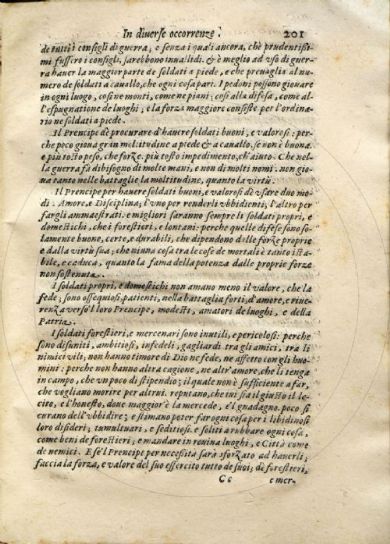 In diuerse occorrenze. 201
de tutti i consigli di guerra, e senza i quali ancora, chè prudentissi-
mi fussero i consigli, sarebbono inualidi. & è meglio ad vso di guer-
ra hauer la maggior parte de soldati a piede, e che preuaglia al nu-
mero de soldati a cauallo, che ogni cosa pari. I pedoni possono giouare
in ogni luogo, così ne monti, come ne piani; così alla difesa, come al-
l'espugnatione de luoghi; e la forza maggiore consiste per l'ordina-
rio ne soldati a piede.
Il Prencipe dè procurare d'hauere soldati buoni, e valorosi: per-
che poco gioua gran moltitudine a piede & a cauallo, se non è buona:
e più tosto peso, che forze, più tosto impedimento, ch'aiuto. Che nel-
la guerra fà dibisogno di molte mani, e non di molti nomi. non gio-
ua tanto nelle battaglie la moltitudine, quanto la virtù.
Il Prencipe per hauere soldati buoni, e valorosi dè vsare duo mo-
di. Amore, e Disciplina; l'vno per renderli vbbidienti, l'altro per
fargli ammaestrati. e migliori saranno sempre li soldati proprj, e
domestichi, che i forestieri, e lontani: perche quelle difese sono so-
lamente buone, certe, e durabili, che dipendono dalle forze proprie
e dalla virtù sua; che niuna cosa tra le cose de mortali è tanto ista-
bile, e caduca, quanto la fama della potenza dalle proprie forze
non sostenuta.
I soldati proprj, e domestichi non amano meno il valore, che la
fede; sono ossequiosi, patienti, nella battaglia forti, d'amore, e riue-
renza verso'l loro Prencipe, modesti, amatori de luoghi, e della
Patria.
I soldati forestieri, e mercenari sono inutili, e pericolosi: perche
sono disuniti, ambitiosi, infedeli, gagliardi tra gli amici, tra li
nimici vili, non hanno timore di Dio ne fede, ne affetto con gli huo-
mini: perche non hanno altra cagione, ne altr'amore, che li tenga
in campo, che vn poco di stipendio; il quale non è sufficiente a far,
che vogliano morire per altrui. reputano, che iui sia il giusto il le-
cito, e l'honesto, doue maggior'è la mercede, e'l guadagno. poco si
curano dell'vbbidire; e stimano poter far ogni cosa per i libidinosi
loro disideri; tumultuari, e seditiosi. e soliti a rubbare ogni cosa,
come beni de forestieri; e mandare in rouina luoghi, e Città come
de nemici. E se'l Prencipe per necessità sarà sforzato ad hauerli;
faccia la forza, e valore del suo essercito tutto de suoi; de forestieri,
Cc e mer-